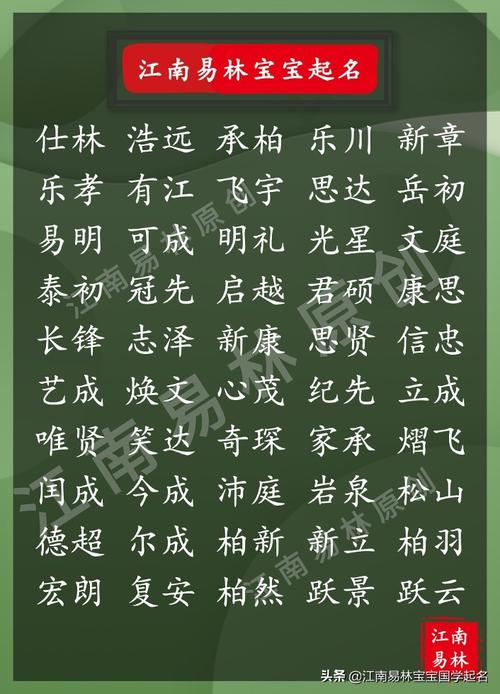 江南易林宝宝起名
仕林 浩远 承柏 乐川 新章
乐孝 有江 飞宇 思达 岳初
易明 可成 明礼 光星 文庭
泰初 冠先 启越 君硕 康思
长锋 志泽 新康 思贤 信忠
艺成 焕文 心茂 纪先 立成
唯贤 笑达 奇琛 家承 熠飞
闰成 今成 沛庭 岩泉 松山
德超 尔成 柏新 新立 柏羽
宏朗 复安 柏然 跃景 跃云
江南易林原创
江南易林原创
江南易林原创
江南
易林
头条 @江南易林宝宝国学起名